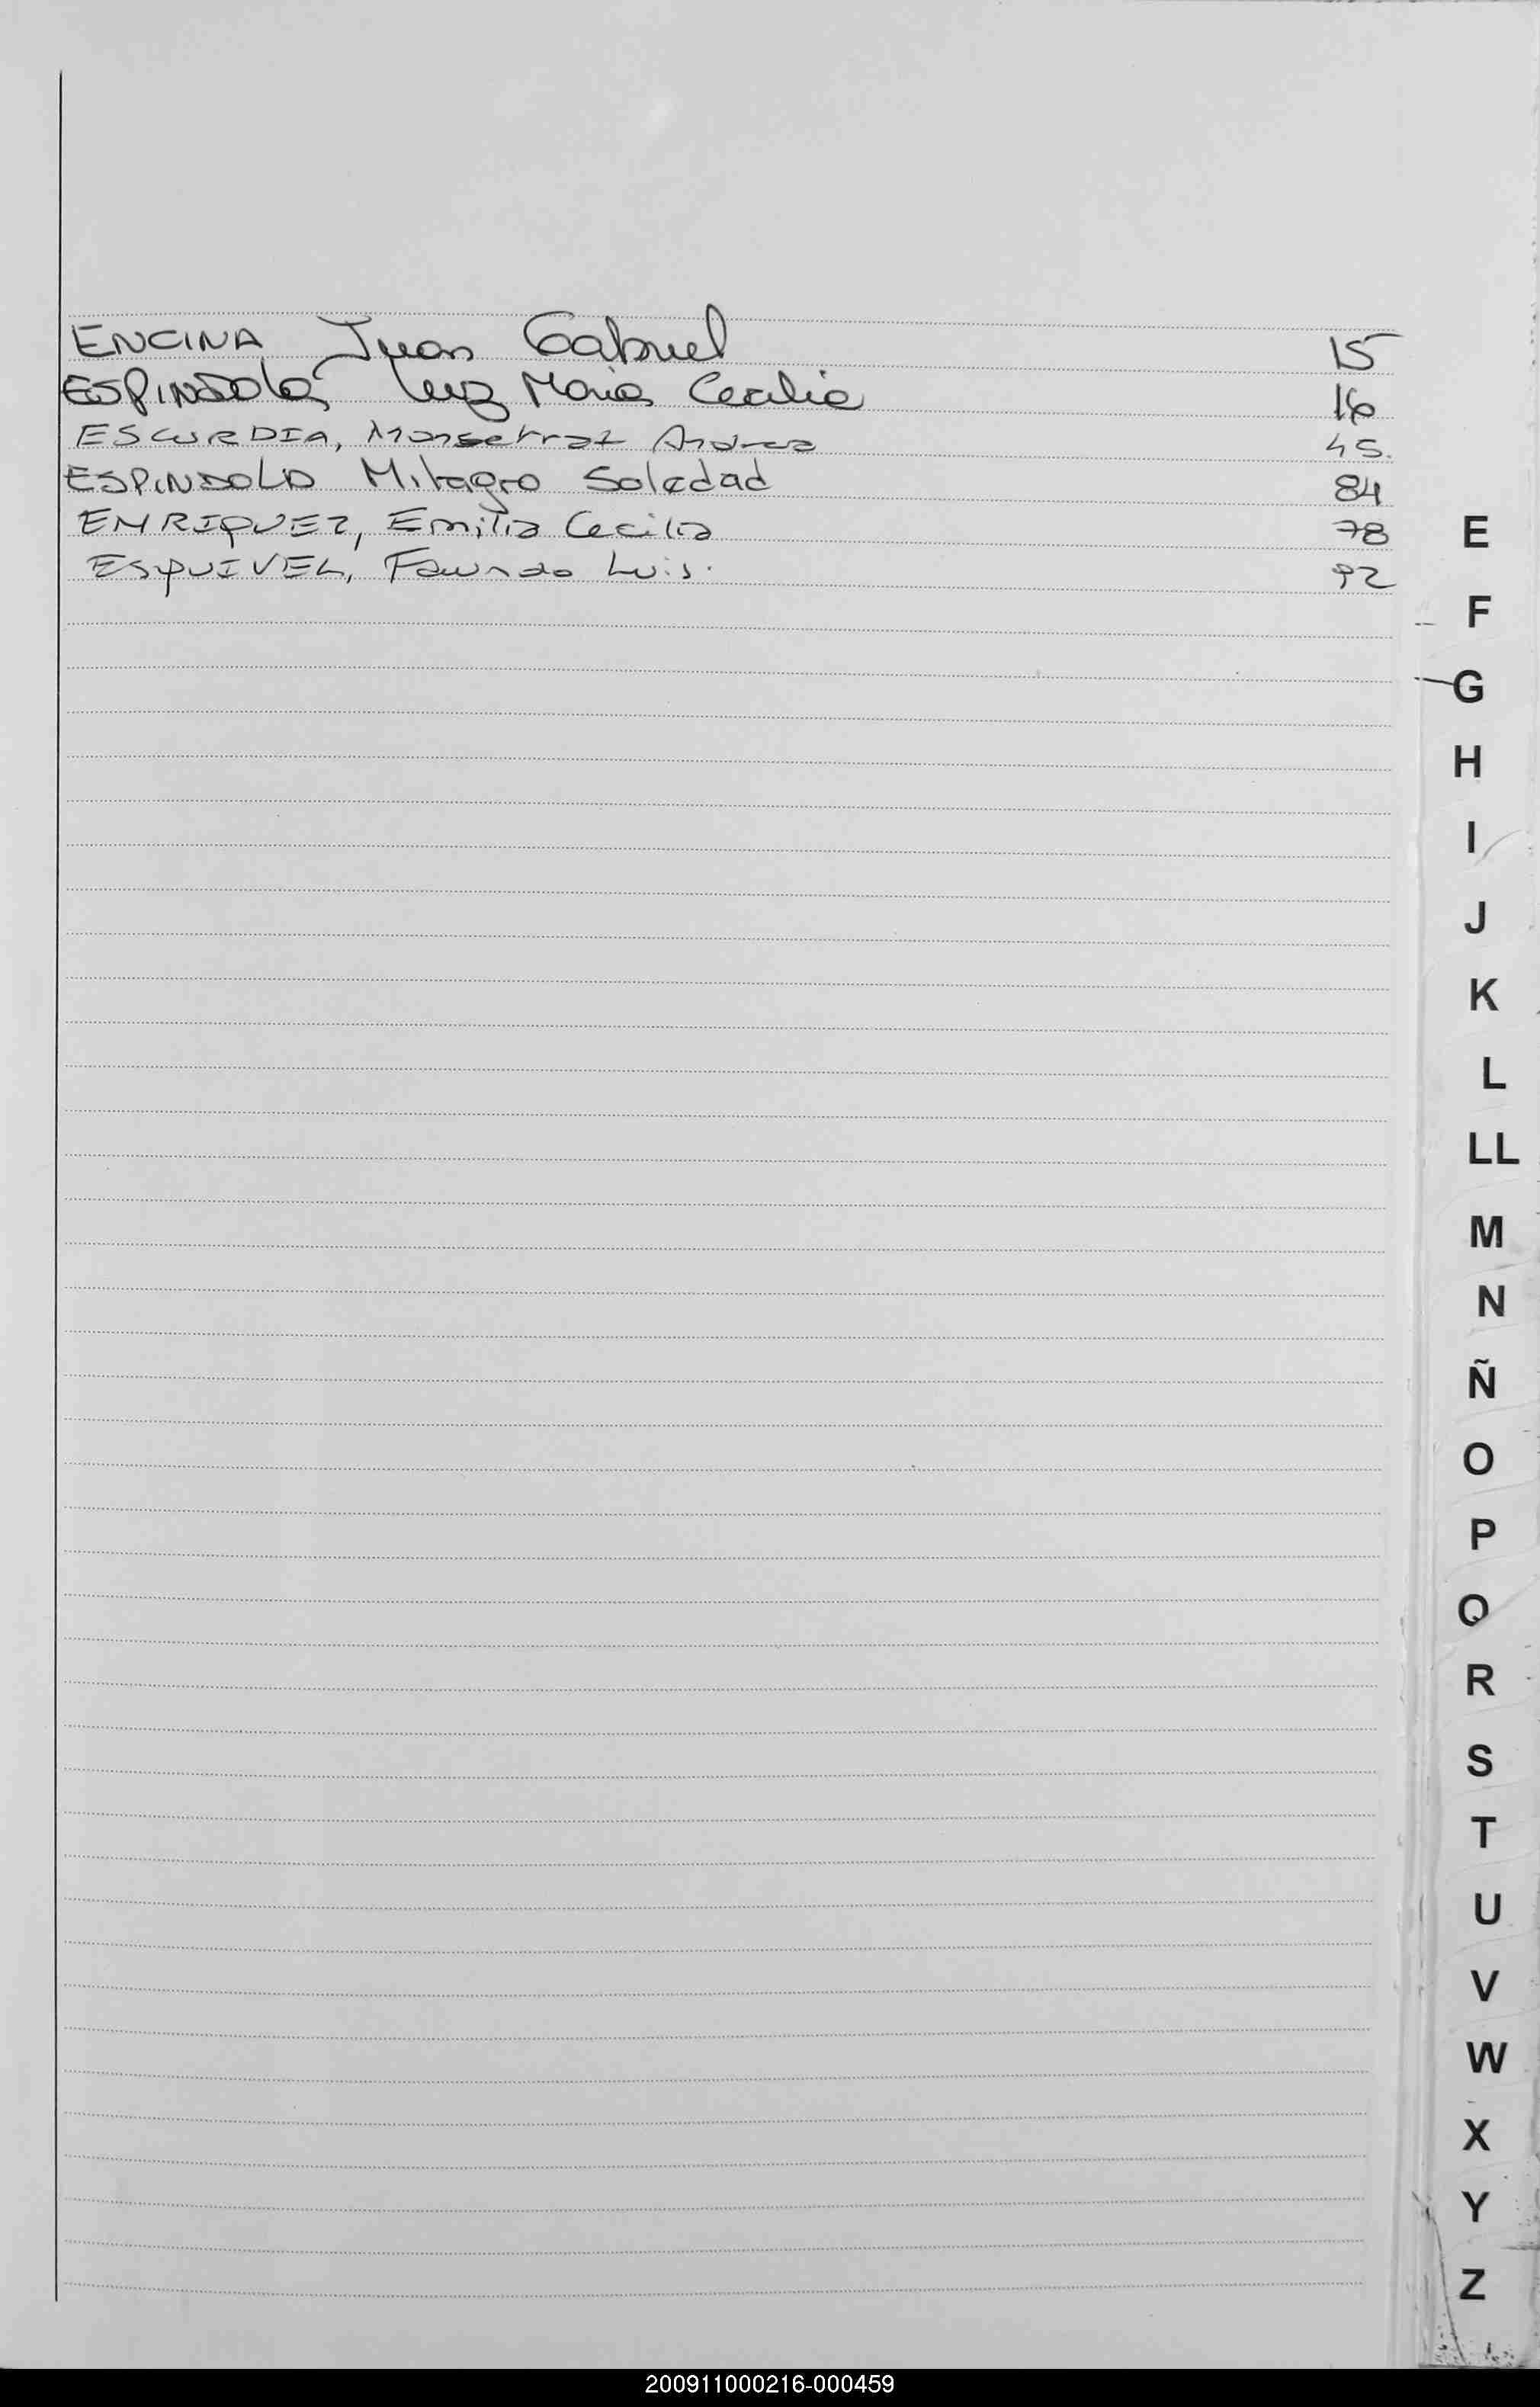 ENCINA Juan Gabriel 15
ESPINDOLA Luz Maria Cecilia 16
ESCURDIA, Monserrat Andrea 45.
ESPINDOLA Milagro Soledad 84
ENRIQUEZ, Emilia Cecilia 78
ESQUIVEL, Facundo Luis. 92
E
F
G
H
I
J
K
L
LL
M
N
Ñ
O
P
Q
R
S
T
U
V
W
X
Y
Z
200911000216-000459